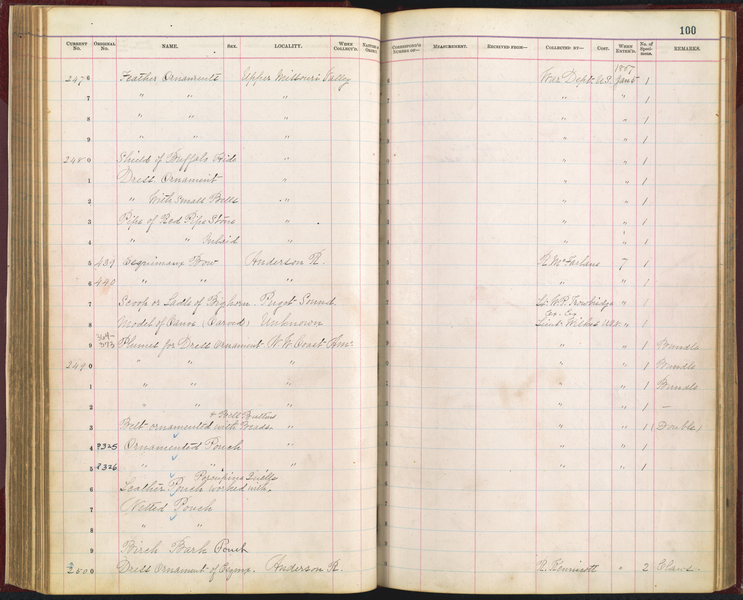 100
CURRENT No. ORIGINAL No. NAME. SEX. LOCALITY. WHEN COLLECT'D. CORRESPOND'G NUMBER OF— MEASUREMENT. RECEIVED FROM— COLLECTED BY— COST. WHEN ENTER'D. No. of Speci-mens. REMARKS.
1867
2476 Feather Ornaments Upper Missouri Valley War Dept. U.S. Jan 5 1
7 " " " " " 1
8 " " " " " 1
9 " " " " " 1
2480 Shield of Buffalo Hide " " " 1
1 Dress Ornament " " " 1
2 " With Small Bells " " " 1
3 Pipe of Red Pipe Stone " " " 1
4 " " Inlaid " " " 1
5 439 Esquimaux Bow Anderson R. R. McFarlane 7 1
6 440 " " " " " 1
7 Scoop or Ladle of Bighorn Puget Sound Lt. W.P. Trowbridge " 1
Ex. Ex.
8 Model of Canoe (Carved) Unknown Lieut. Wilkes U.S.N. " 1
9 Plumes for Dress Ornament N.W. Coast Ama " " 1 Bundle
2490 " " " " " 1 Bundle
1 " " " " " 1 Bundle
2 " " " " " 1 —
& Bell Buttons
3 Belt ornamented with Beads " " " 1 (Double)
4 2325 Ornamented Pouch " " " 1
5 2326 " " " " " 1
Porcupine Quills
6 Leather Pouch worked with
7 Netted Pouch
8 " "
9 Birch Bark Pouch
2500 Dress Ornament of Esqmx. Anderson R. R. Kennicott " 2 Claws